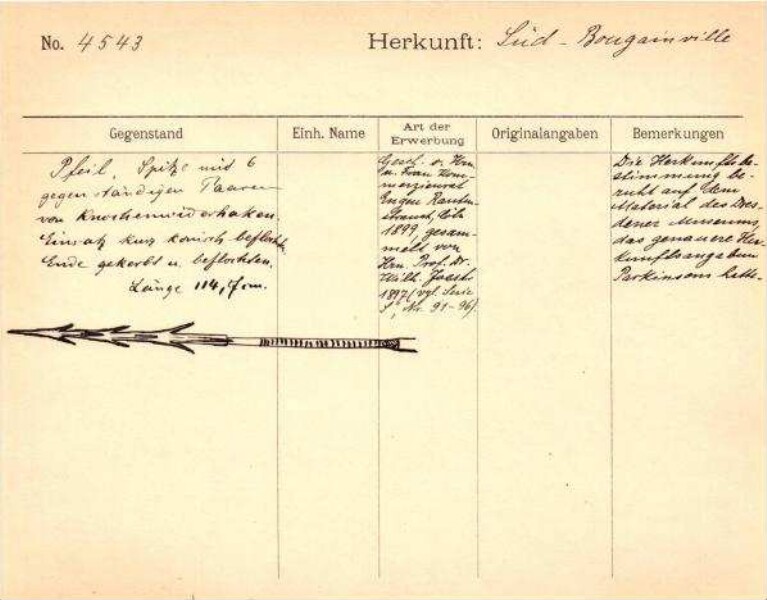 No. 4543
Herkunft: Süd - Bougainville
Gegenstand
Einh. Name
Art der
Erwerbung
Originalangaben
Bemerkungen
Pfeil. Spitze mit 6
gegenständigen Paaren
von Knochenwiderhaken.
Einsatz kurz konisch beflochten,
Ende gekerbt u. beflochten.
Länge 114,7 cm.
Gesch. v. Hrn
u. Frau Kom-
merzienrat
Eugen Rauten-
strauch, Cöln
1899, gesam-
melt von
Hrn. Prof. Dr.
Wilh. Joest
1897 (vgl. Serie
S, Nr. 91-96).
Die Herkunftsbe-
stimmung be-
ruht auf dem
Material des Dres-
dener Museums,
das genauere Her-
kunftsangaben
Parkinsons hatte.